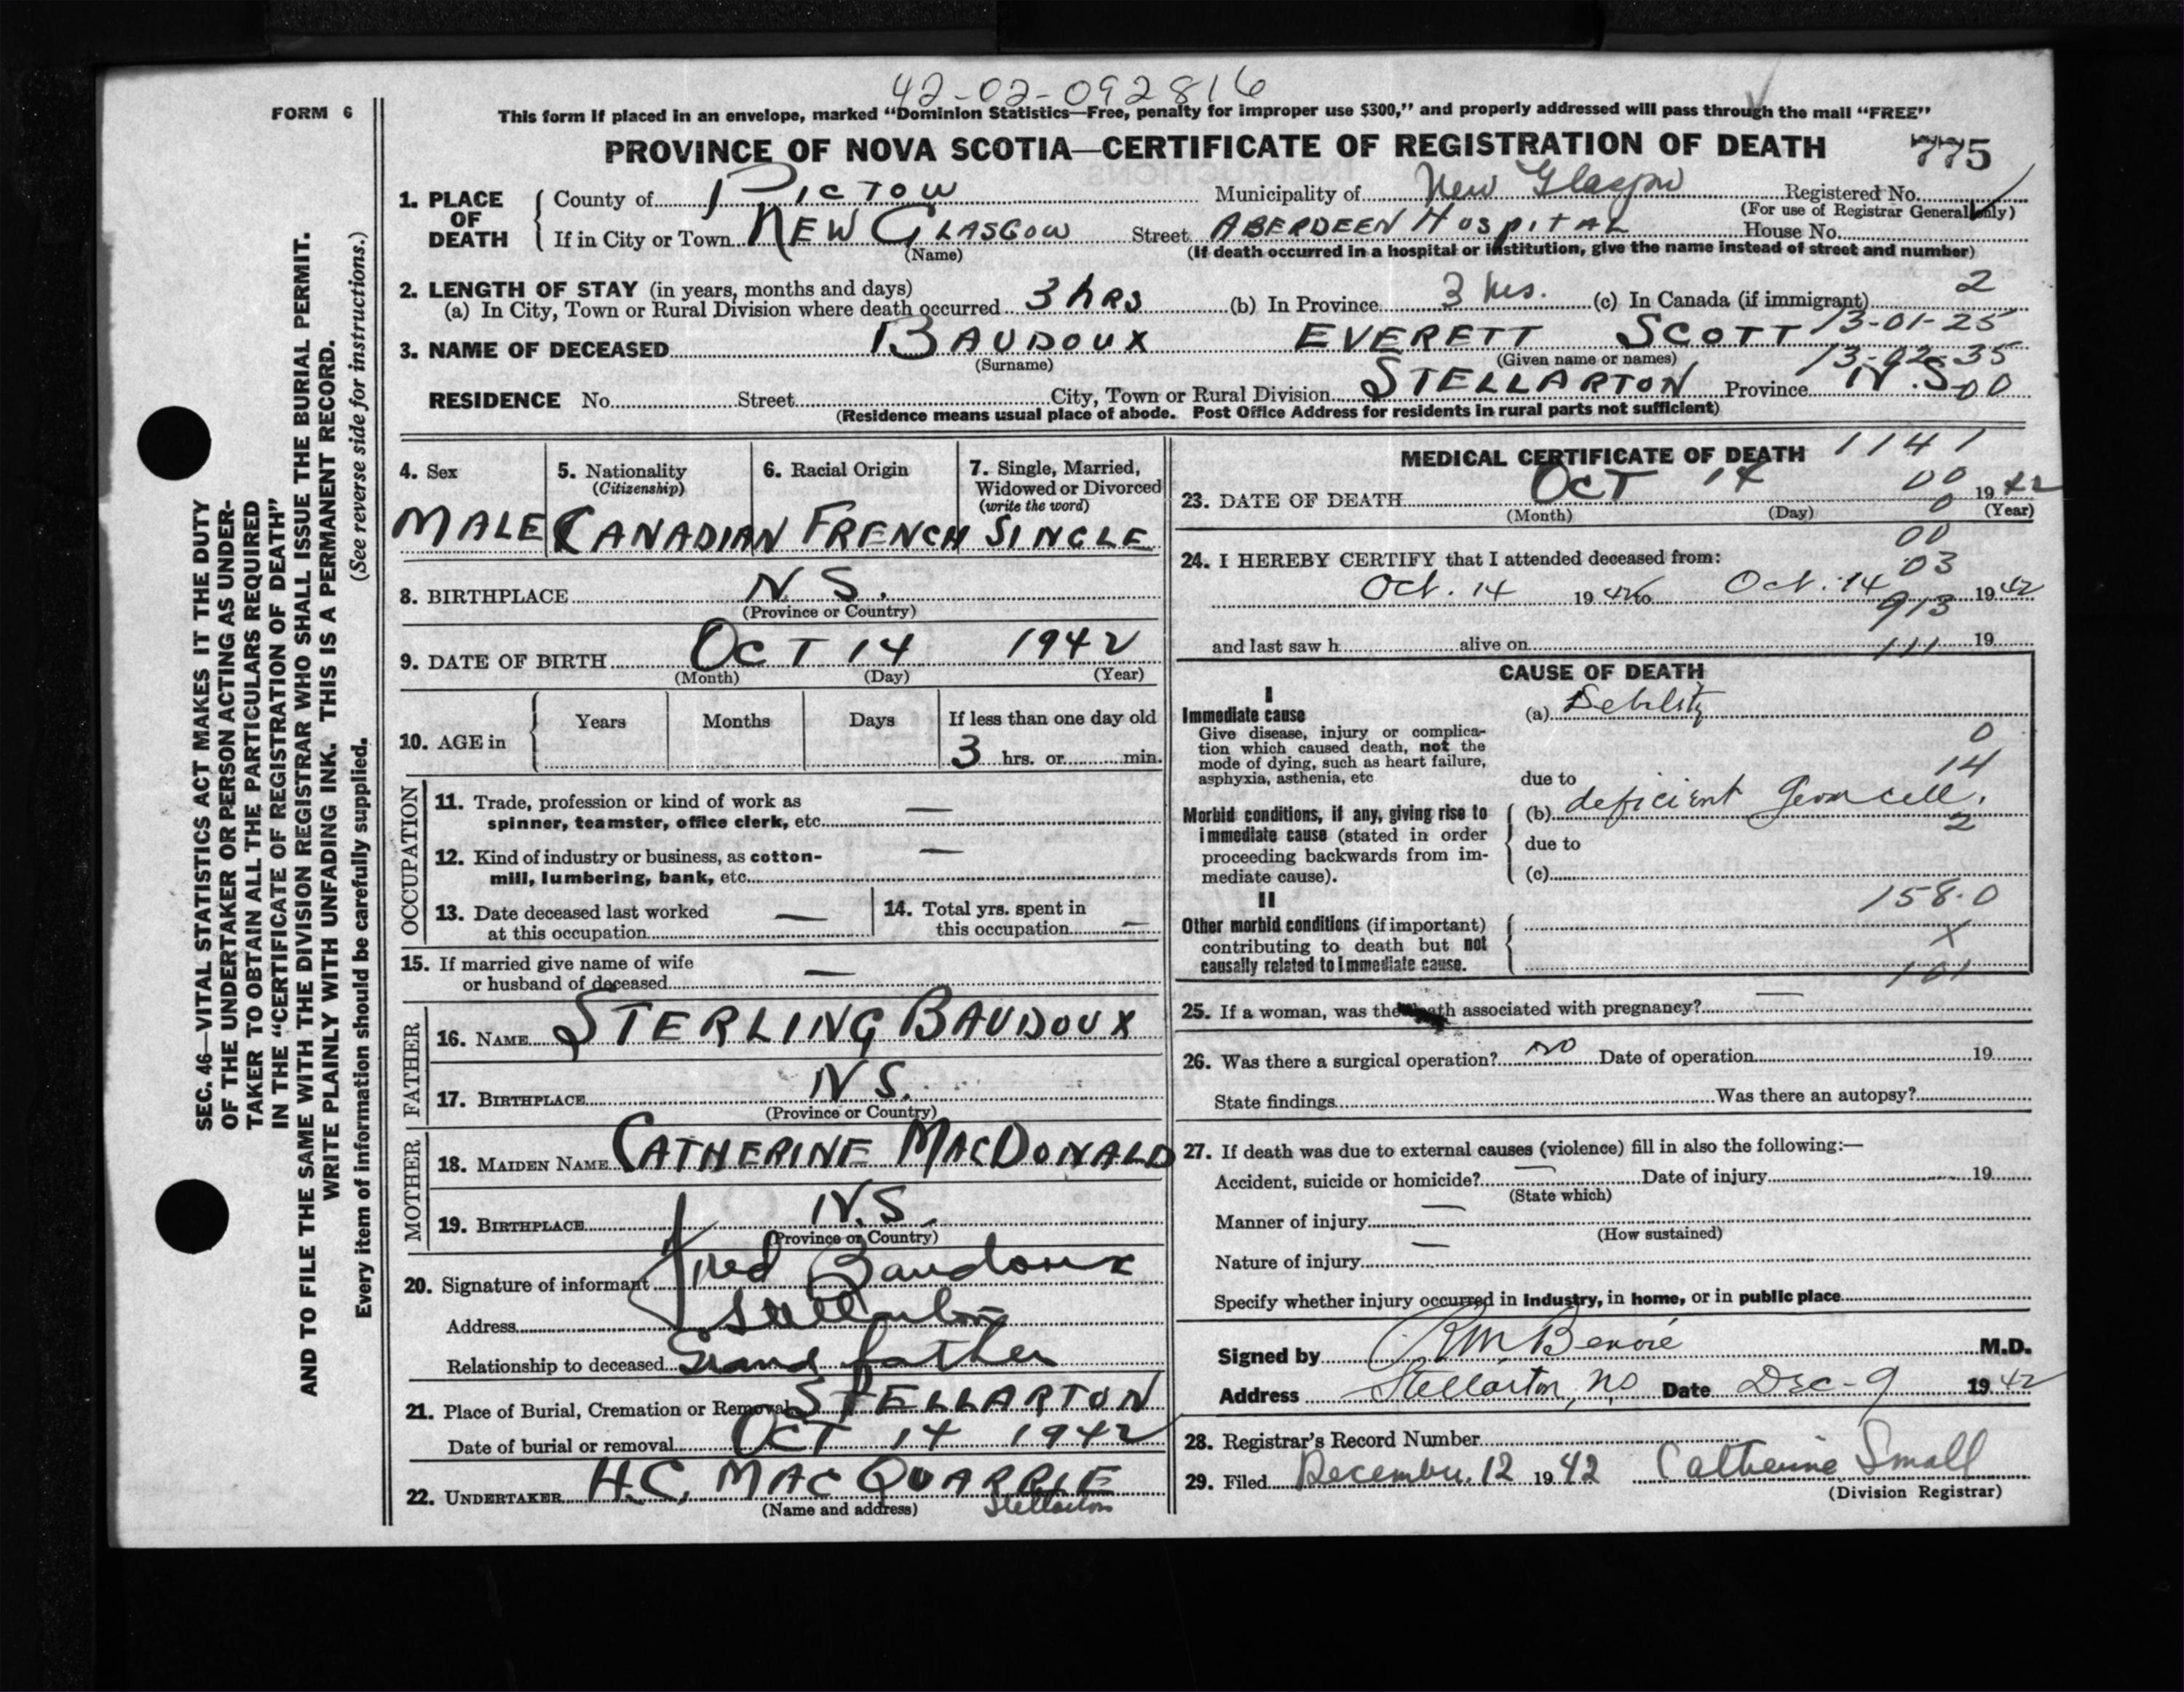 42-02-092816
FORM 6
This form if placed in an envelope, marked “Dominion Statistics—Free, penalty for improper use $300,” and properly addressed will pass through the mail “FREE”
PROVINCE OF NOVA SCOTIA—CERTIFICATE OF REGISTRATION OF DEATH 775
1. PLACE OF DEATH
County of PICTOU Municipality of New Glasgow Registered No.
(For use of Registrar General only)
If in City or Town NEW GLASGOW Street ABERDEEN HOSPITAL House No.
(Name) (If death occurred in a hospital or institution, give the name instead of street and number)
2. LENGTH OF STAY (in years, months and days)
(a) In City, Town or Rural Division where death occurred 3 HRS (b) In Province 3 hrs. (c) In Canada (if immigrant) 2
3. NAME OF DECEASED BAUDOUX EVERETT SCOTT 13-01-25
(Surname) (Given name or names) 13-02-35
RESIDENCE No. Street City, Town or Rural Division STELLARTON Province N.S. 00
(Residence means usual place of abode. Post Office Address for residents in rural parts not sufficient)
SEC. 46—VITAL STATISTICS ACT MAKES IT THE DUTY
OF THE UNDERTAKER OR PERSON ACTING AS UNDER-
TAKER TO OBTAIN ALL THE PARTICULARS REQUIRED
IN THE “CERTIFICATE OF REGISTRATION OF DEATH”
AND TO FILE THE SAME WITH THE DIVISION REGISTRAR WHO SHALL ISSUE THE BURIAL PERMIT.
WRITE PLAINLY WITH UNFADING INK. THIS IS A PERMANENT RECORD.
Every item of information should be carefully supplied. (See reverse side for instructions.)
4. Sex 5. Nationality (Citizenship) 6. Racial Origin 7. Single, Married, Widowed or Divorced (write the word)
MALE CANADIAN FRENCH SINGLE
8. BIRTHPLACE N.S.
(Province or Country)
9. DATE OF BIRTH OCT 14 1942
(Month) (Day) (Year)
10. AGE in Years Months Days If less than one day old
3 hrs. or min.
OCCUPATION
11. Trade, profession or kind of work as —
spinner, teamster, office clerk, etc.
12. Kind of industry or business, as cotton- —
mill, lumbering, bank, etc.
13. Date deceased last worked at this occupation —
14. Total yrs. spent in this occupation —
15. If married give name of wife —
or husband of deceased
FATHER
16. NAME STERLING BAUDOUX
17. BIRTHPLACE N.S.
(Province or Country)
MOTHER
18. MAIDEN NAME CATHERINE MACDONALD
19. BIRTHPLACE N.S.
(Province or Country)
20. Signature of informant Fred Baudoux
Address Stellarton
Relationship to deceased Grand father
21. Place of Burial, Cremation or Removal STELLARTON
Date of burial or removal OCT 14 1942
22. UNDERTAKER H.C. MAC QUARRIE
(Name and address) Stellarton
MEDICAL CERTIFICATE OF DEATH 1141
23. DATE OF DEATH OCT 14 00 1942
(Month) (Day) 0 (Year)
00
24. I HEREBY CERTIFY that I attended deceased from: 03
Oct. 14 1942 to Oct. 14 1942
913
and last saw h alive on 111 19
CAUSE OF DEATH
I
Immediate cause (a) Debility
Give disease, injury or complica-
tion which caused death, not the 0
mode of dying, such as heart failure, 14
asphyxia, asthenia, etc due to
Morbid conditions, if any, giving rise to (b) deficient Germ cell.
immediate cause (stated in order 2
proceeding backwards from im- due to
mediate cause). (c)
II 158.0
Other morbid conditions (if important)
contributing to death but not X
causally related to immediate cause. 101
25. If a woman, was the death associated with pregnancy? —
26. Was there a surgical operation? no Date of operation 19
State findings Was there an autopsy?
27. If death was due to external causes (violence) fill in also the following:—
Accident, suicide or homicide? — Date of injury 19
(State which)
Manner of injury —
(How sustained)
Nature of injury —
Specify whether injury occurred in industry, in home, or in public place
Signed by RM Benvie M.D.
Address Stellarton, NS Date Dec-9 1942
28. Registrar's Record Number
29. Filed December 12 1942 Catherine Small
(Division Registrar)